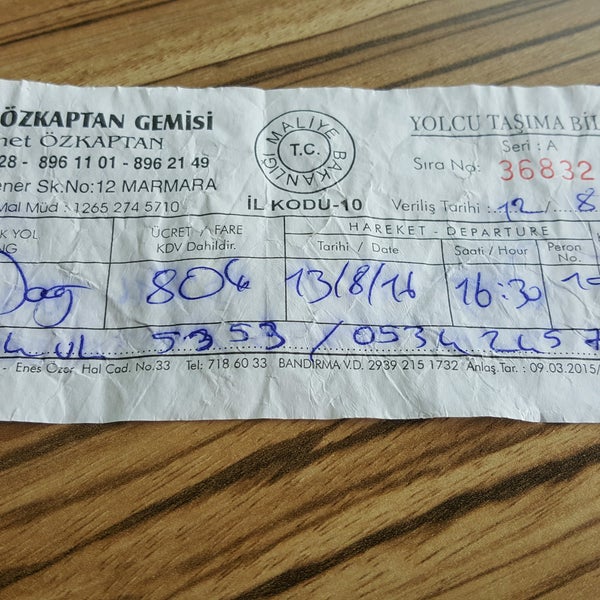 ÖZKAPTAN GEMİSİ
net ÖZKAPTAN
28 - 896 11 01 - 896 21 49
ener Sk.No:12 MARMARA
Mal Müd : 1265 274 5710
MALİYE BAKANLIĞI
T.C.
İL KODU-10
YOLCU TAŞIMA BİL
Seri : A
Sıra No: 36832
Veriliş Tarihi : 12 / 8
K YOL
NG
ÜCRET / FARE
KDV Dahildir.
HAREKET - DEPARTURE
Tarihi / Date
Saati / Hour
Peron No.
80₺ 13/8/16 16:30
UL 5353 / 0534 245
- Enes Özer Hal Cad. No.33 Tel: 718 60 33 BANDIRMA V.D. 2939 215 1732 Anlaş.Tar. : 09.03.2015/